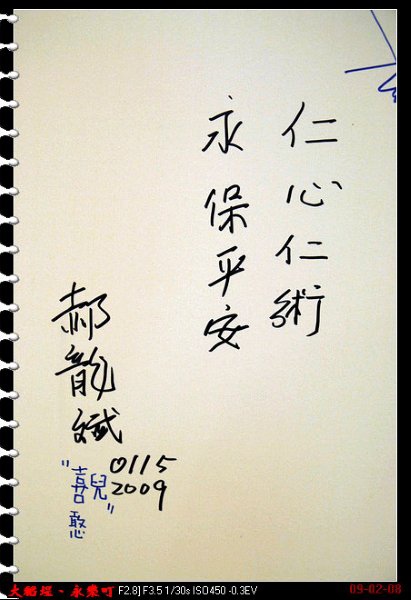 仁心仁術
永保平安
郝龍斌
0115
2009
"喜兒"
憨
F2.8] F3.5 1/30s ISO450 -0.3EV
09-02-08